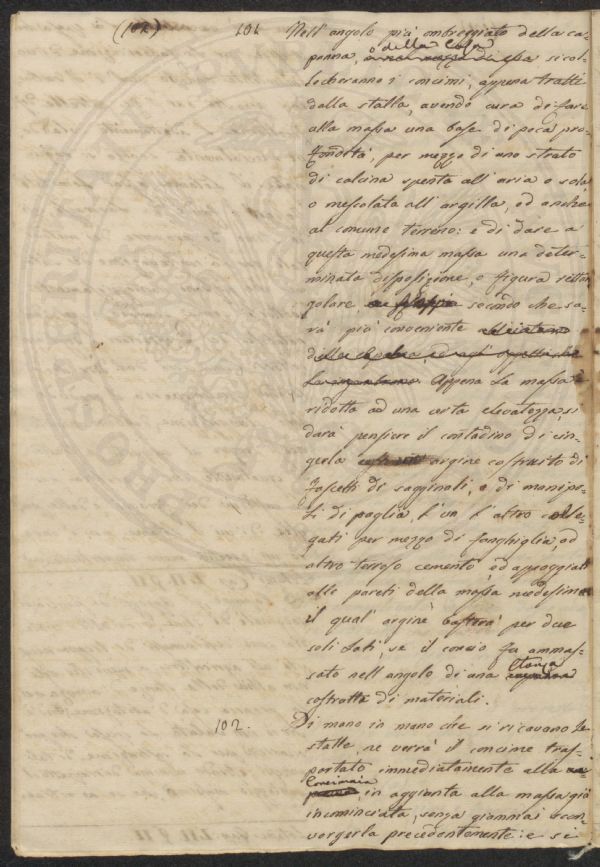 (102) 101 Nell' angolo più ombreggiato della ca-
panna, o della Casa si col-
locheranno i concimi, appena tratti
dalla stalla, avendo cura di fare
alla massa una base di poca pro-
fondità, per mezzo di uno strato
di calcina spenta all' aria o sola,
o mescolata all' argilla, od anche
al comune terreno: e di dare a
questa medesima massa una deter-
minata disposizione, o figura rettan
golare, secondo che sa-
rà più conveniente
Appena la massa è
ridotta ad una certa elevatezza, si
darà pensiere il contadino di cin-
gerla argine costruito di
fascetti di sagginali, o di manipo-
li di paglia, l'un l'altro colle-
gati per mezzo di fanghiglia, od
altro terroso cemento, ed appoggiati
alle pareti della massa medesima
il qual' argine basterà per due
soli lati, se il concio fu ammas-
sato nell' angolo di una stanza
costrotta di materiali.
102. Di mano in mano che si ricavano le
stalle, ne verrà il concime tras-
portato immediatamente alla
Concimaia, in aggiunta alla massa già
incominciata, senza giammai scon
vorgerla precedentemente: e si-